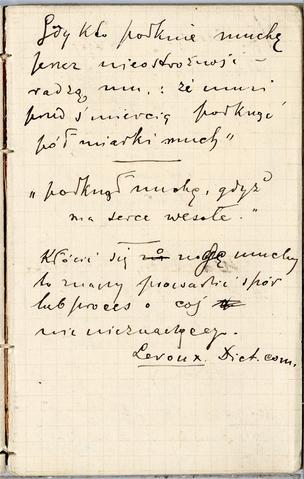 Gdy kto połknie muchę
przez nieostrożność -
radzą mu : że musi
przed śmiercią połknąć
pół miarki much"
„połknął muchę, gdyż
ma serce wesołe."
Kłócić się o nogę muchy
to znaczy prowadzić spór
lub proces o coś
nic nieznaczącego.
Leroux. Dict. com.